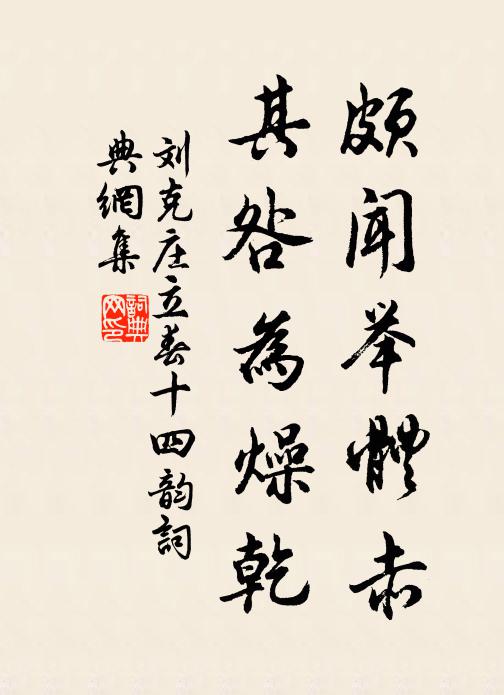 颇闻举体赤
其咎為燥乾
刘克庄立春十四韵詞
典網集
詞典网印